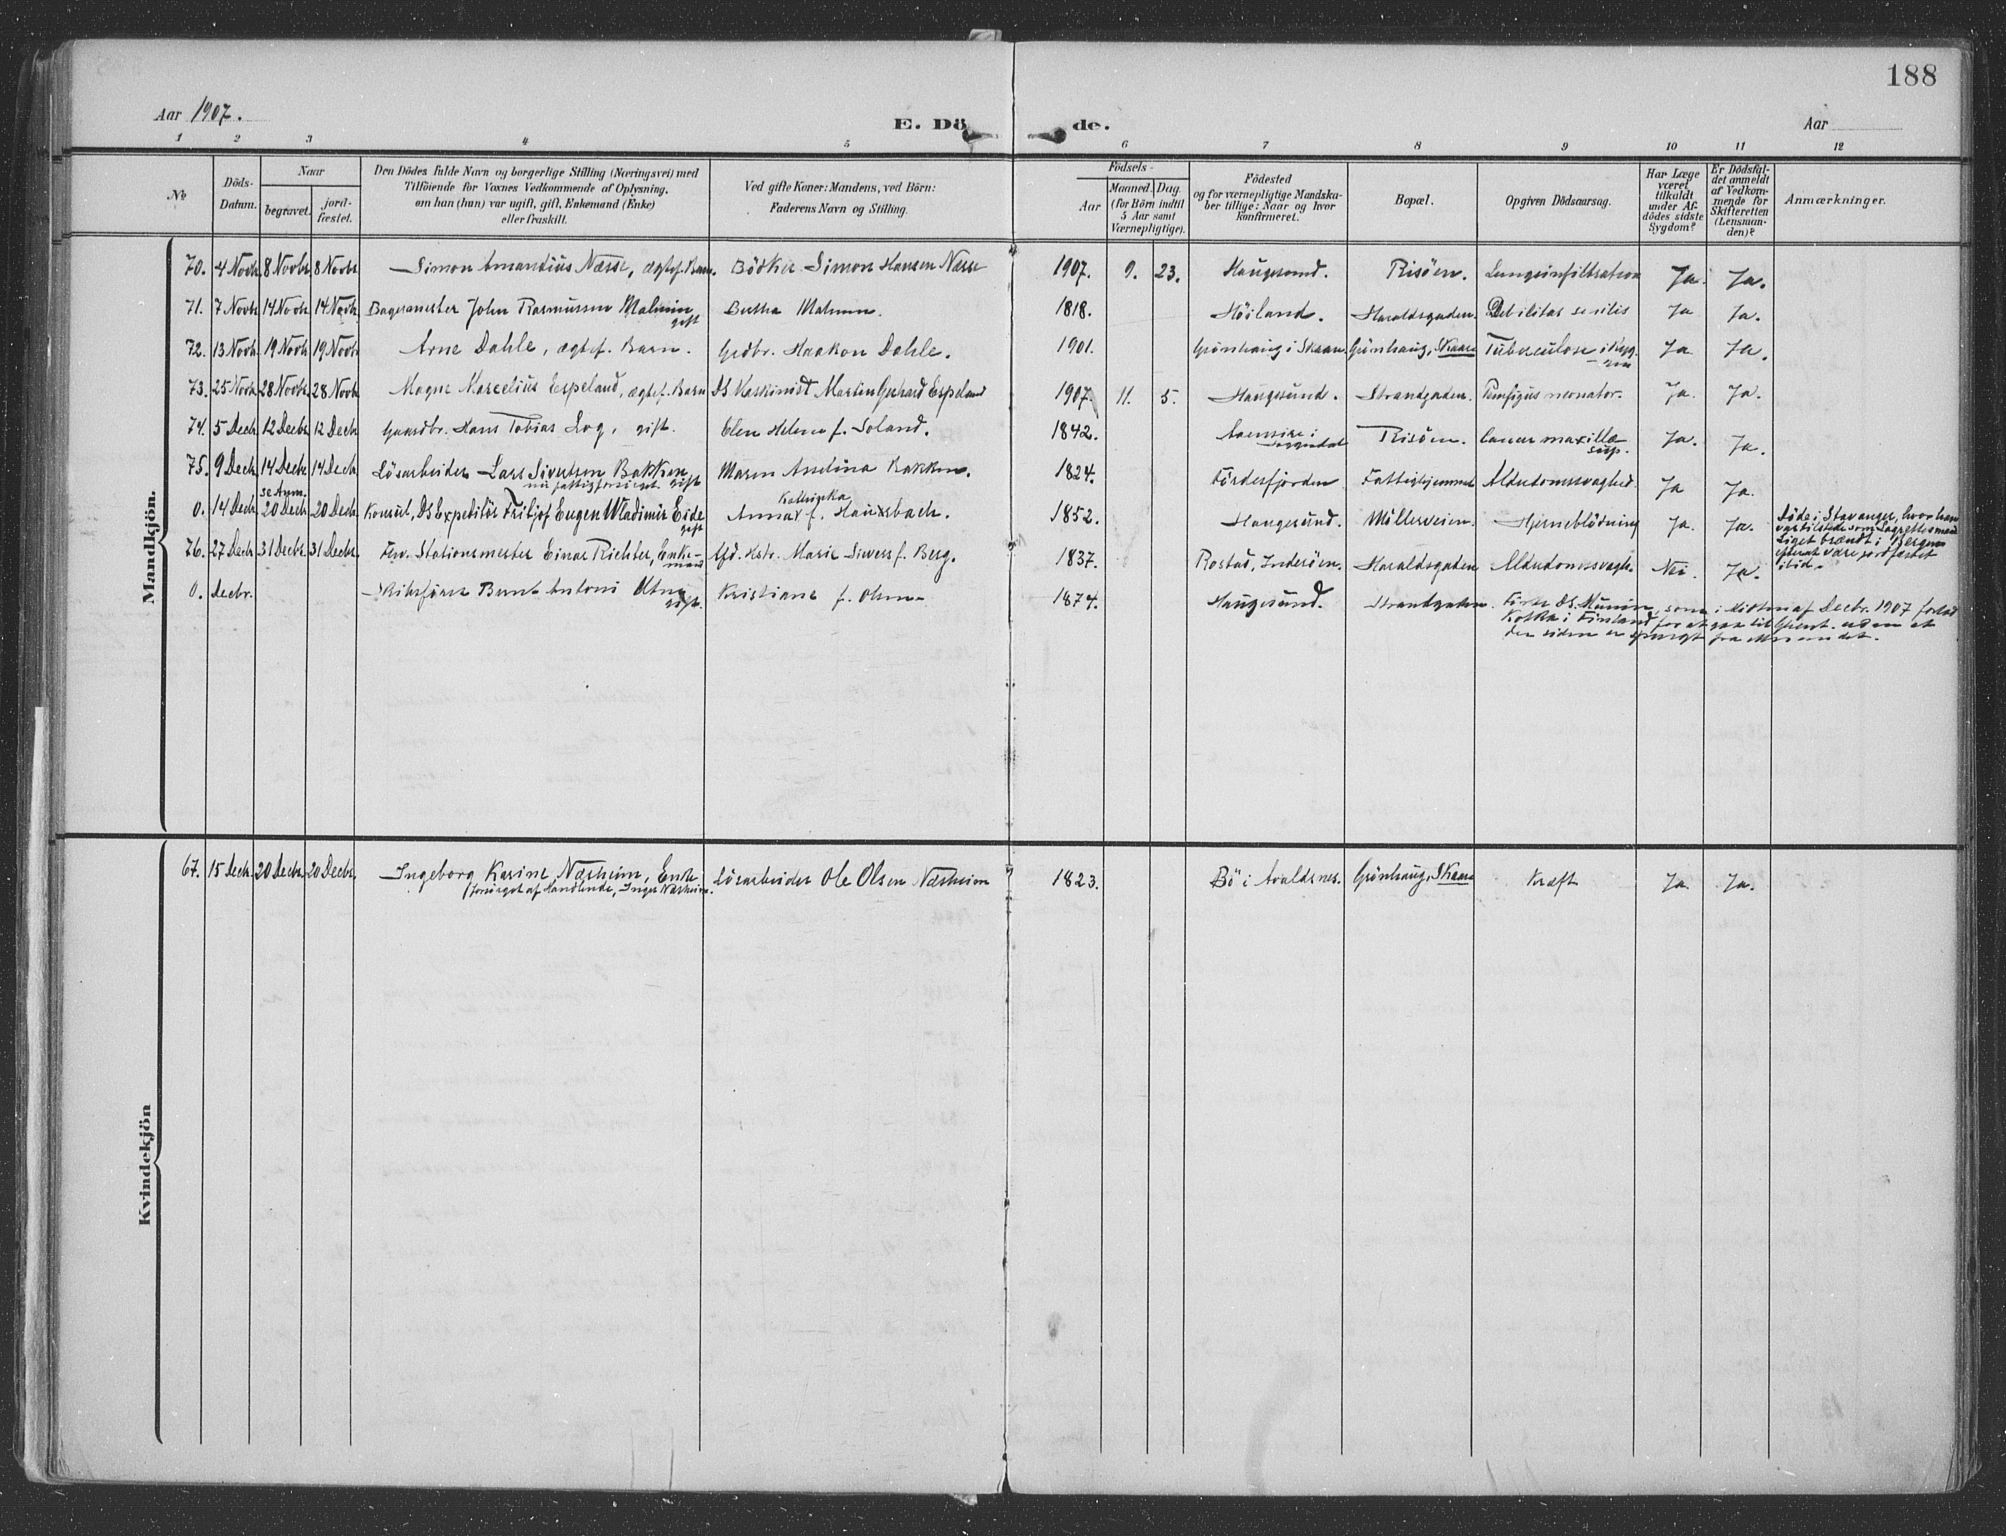 188
Aar 1907.
E. Dö de.
Aar
1 2 3 4 5 6 7 8 9 10 11 12
No
Döds-Datum.
Naar
begravet.
jord-fæstet.
Den Dödes fulde Navn og borgerlige Stilling (Næringsvei) med
Tilföiende for Voxnes Vedkommende af Oplysning,
om han (hun) var ugift, gift, Enkemand (Enke)
eller fraskilt.
Ved gifte Koner: Mandens, ved Börn:
Faderens Navn og Stilling.
Födsels-
Aar
Maaned. Dag.
(for Börn indtil
5 Aar samt
Værnepligtige).
Födested
og for værnepligtige Mandska-
ber tillige: Naar og hvor
konfirmeret.
Bopæl.
Opgiven Dödsaarsag.
Har Læge
været
tilkaldt
under Af-
dödes sidste
Sygdom?
Er Dödsfal-
det anmeldt
af Vedkom-
mende for
Skifteretten
(Lensman-
den)?
Anmærkninger.
Mandkjön.
70. 4 Novb. 8 Novbr. 8 Novbr. Simon Amandius Næsse, ægtef. Barn. Bödker Simon Hansen Næsse 1907. 9. 23. Haugesund. Risöen. Lungeinfiltration Ja. Ja.
71. 7 Novb. 14 Novb. 14 Novb. Bagermester John Rasmussen Malmin gift Bertha Malmin. 1818. Höiland. Haraldsgaden. Debilitas senilis Ja Ja.
72. 13 Novb. 19 Novb. 19 Novb. Arne Dahle, ægtef. Barn. Grdbr. Haakon Dahle. 1901. Grönhaug i Skaare Grönhaug, Skaare Tuberculose i Ryggen Ja Ja.
73. 25 Novb. 28 Novb. 28 Novb. Magne Marcelius Espeland, ægtef. Barn DS Maskinist Martin Gerhard Espeland 1907 11. 5. Haugesund. Strandgaden. Pemfigus neonator. Ja. Ja.
74. 5 Decb. 12 Decbr. 12 Decb. Gaardbr. Hans Tobias Log, gift. Elen Helene f. Soland. 1842. Aaensire i Soggendal Risöen. Cancer maxillæ sup. Ja. Ja.
75. 9 Decb. 14 Decbr. 14 Decb. Lösarbeider Lars Sivertsen Bakken nu fattigforsörget gift Maren Anelina Bakken. 1824. Fördesfjorden Fattighjemmet Alderdomssvaghed. Ja Ja.
se Anm.
0. 14 Decb. 20 Decb. 20 Decb. Konsul, DS Expeditör Fritjof Eugen Wladimir Eide gift Anna Kathinka f. Hansbach. 1852. Haugesund. Möllerveien. Hjerneblödning Ja. Ja. Döde i Stavanger, hvor han
var tilstede som Lagrettesmand
Liget brændt i Bergen
efter at være jordfæstet
itid.
76. 27 Decb. 31 Decbr. 31 Decbr. Forv. Stationsmester Einar Richter, Enkemand Afd. Hstr. Marie Siwers f. Berg. 1837. Rostad, Inderöen. Haraldsgaden Alderdomssvagh. Nei. Ja.
0. Decbr. Skibsförer Bernt Antoni Utne gift. Kristiane f. Olsen 1874. Haugesund. Strandgaden. Förte DS. Munin, som i Midten af Decbr. 1907 forlod
Kotka i Finland for at gaa til Ghent, uden at
der siden er spurgt fra ham andet.
Kvindekjön
67. 15 Decb. 20 Decbr. 20 Decbr. Ingeborg Karine Næsheim, Enke Lösarbeider Ole Olsen Næsheim 1823. Bö i Avaldsnes. Grönhaug, Skaare Kræft Ja. Ja.
(forsörget af Inger Næsheim.